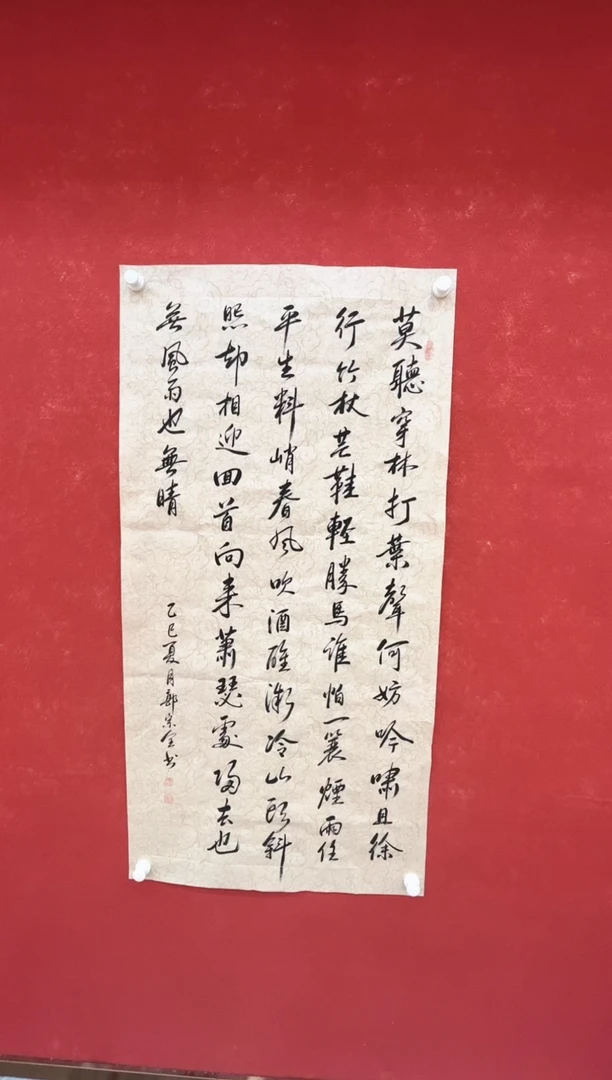 莫聽穿林打葉聲何妨吟嘯且徐
行竹杖芒鞋輕勝馬誰怕一蓑煙雨任
平生料峭春風吹酒醒微冷山頭斜
照却相迎回首向来蕭瑟處歸去也
無風雨也無晴
乙巳夏月宗全书